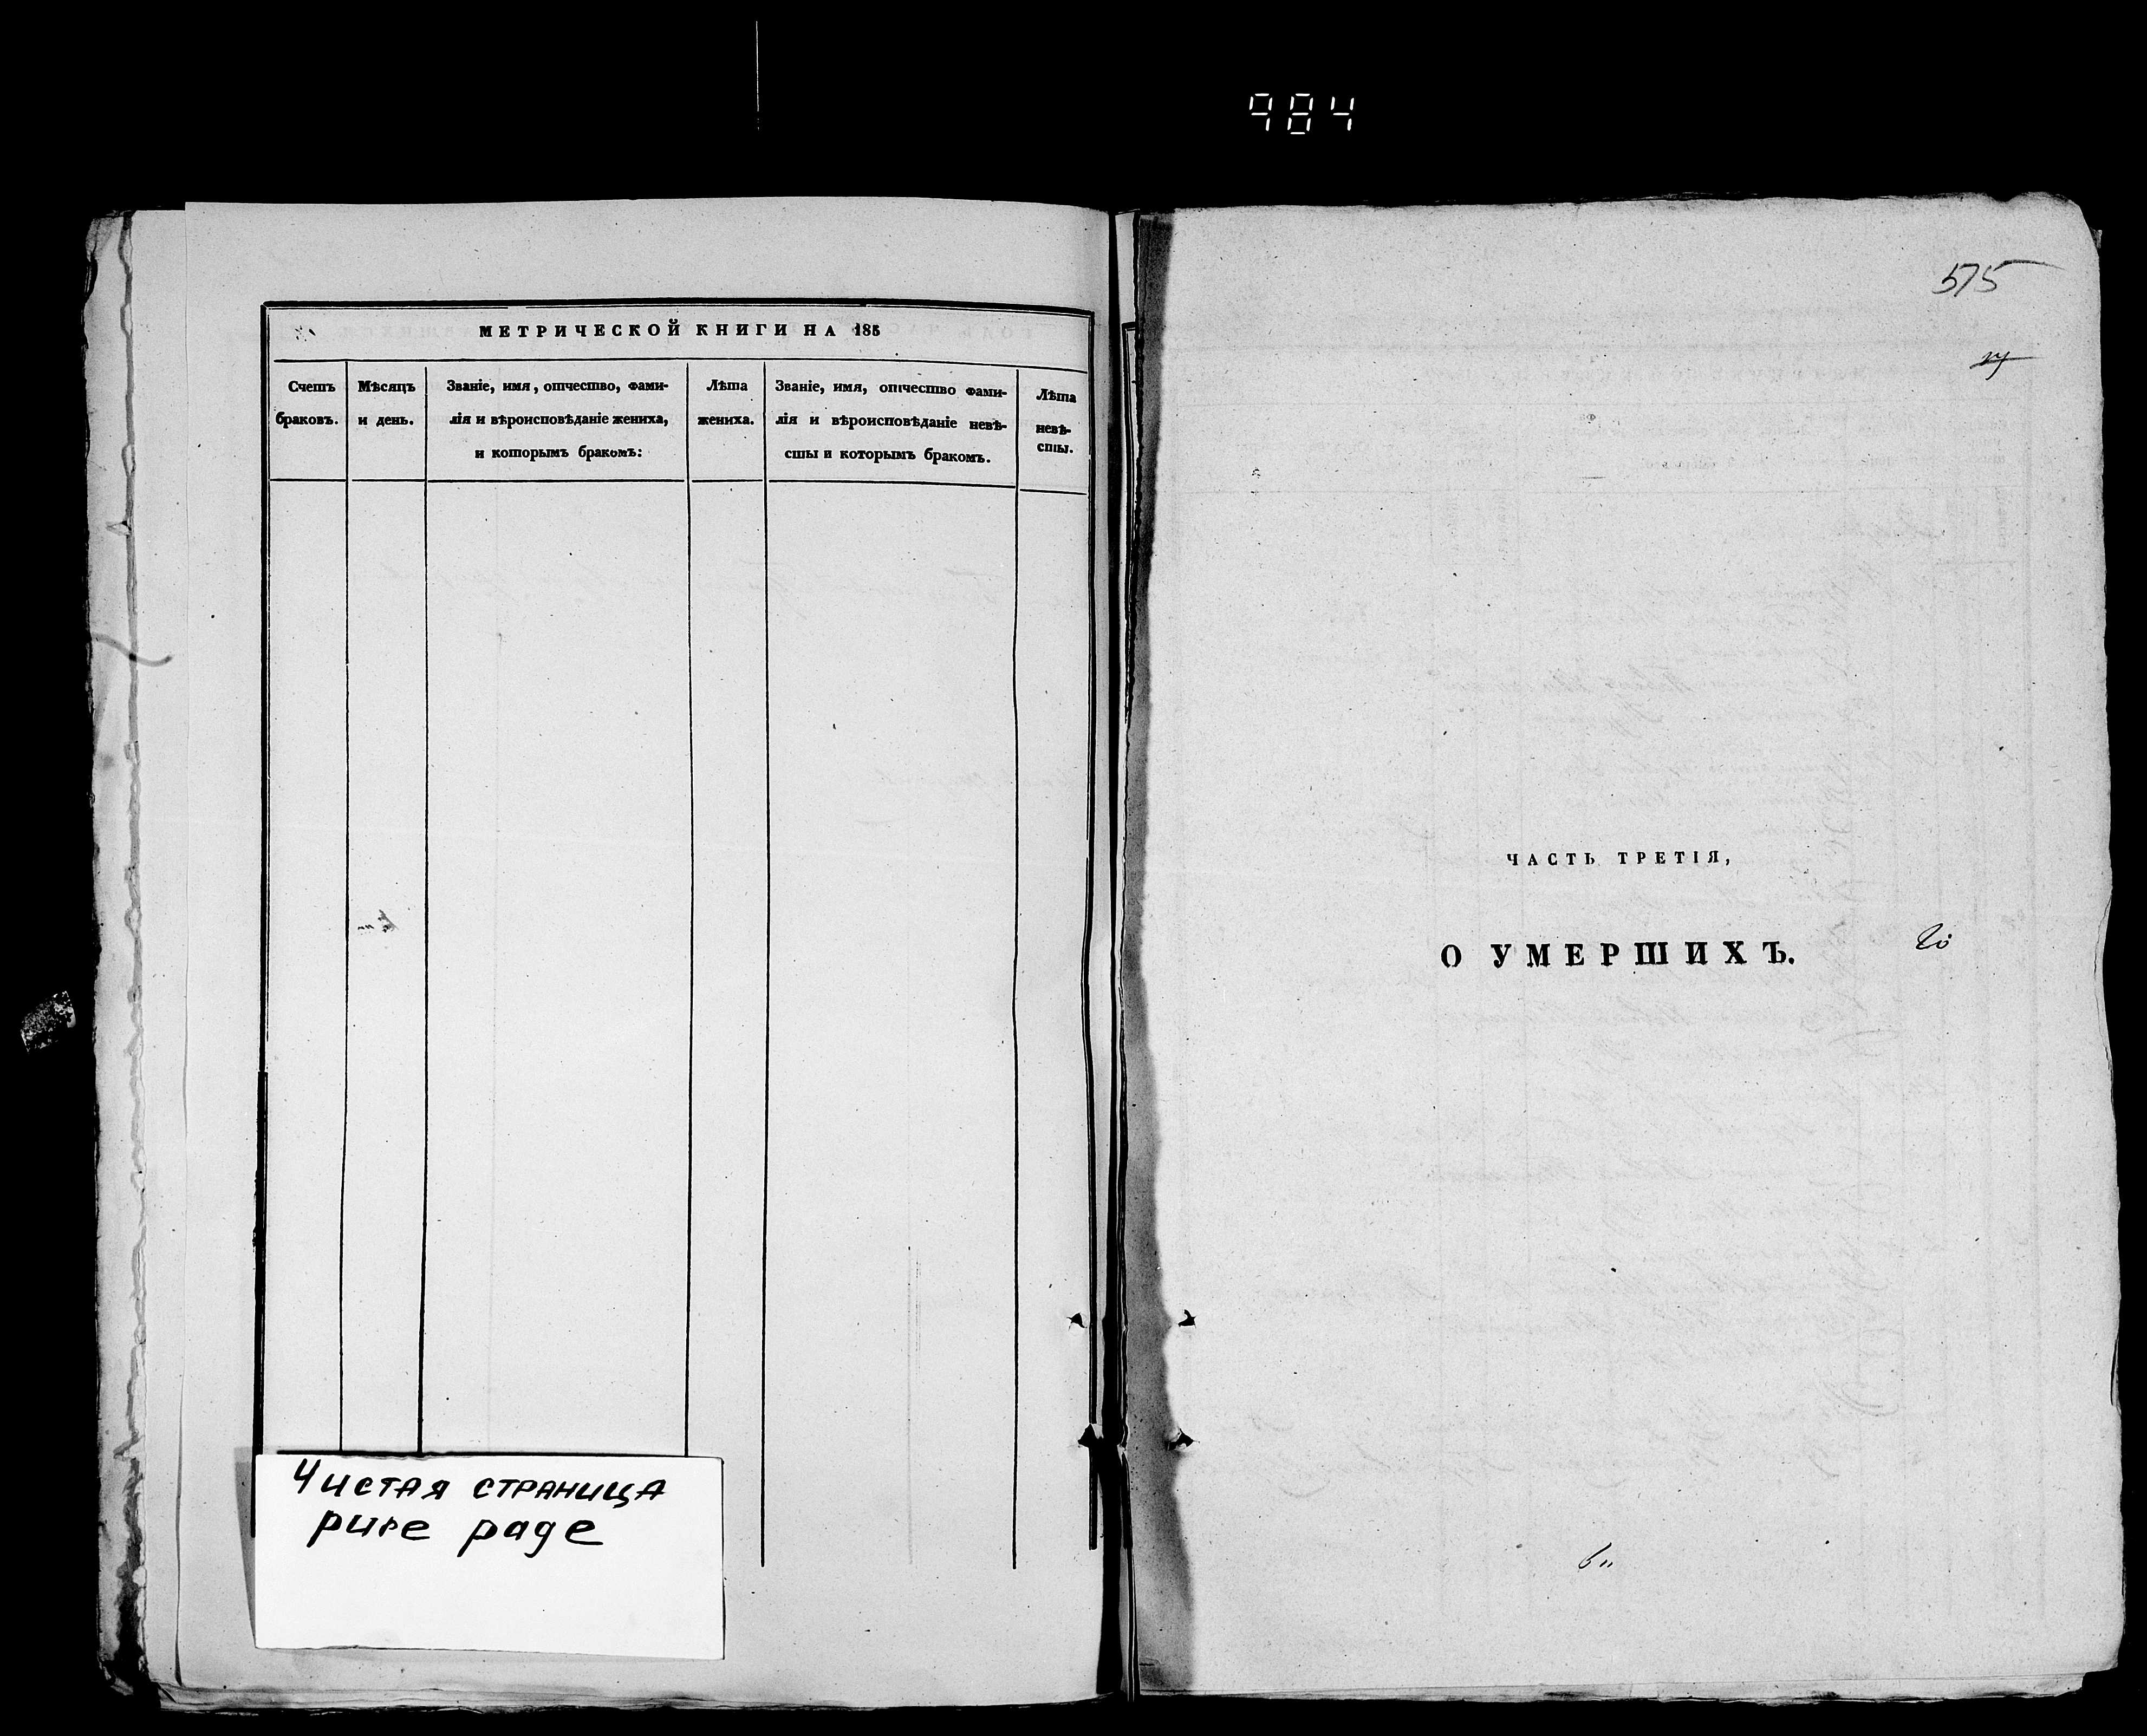 984
МЕТРИЧЕСКОЙ КНИГИ НА 185
Счетъ
браковъ.
Мѣсяцъ
и день.
Званіе, имя, отчество, фами-
лія и вѣроисповѣданіе жениха,
и которымъ бракомъ:
Лѣта
жениха.
Званіе, имя, отчество фами-
лія и вѣроисповѣданіе невѣ-
сты и которымъ бракомъ.
Лѣта
невѣ-
сты.
Чистая страница
pure page
575
ЧАСТЬ ТРЕТІЯ,
О УМЕРШИХЪ.